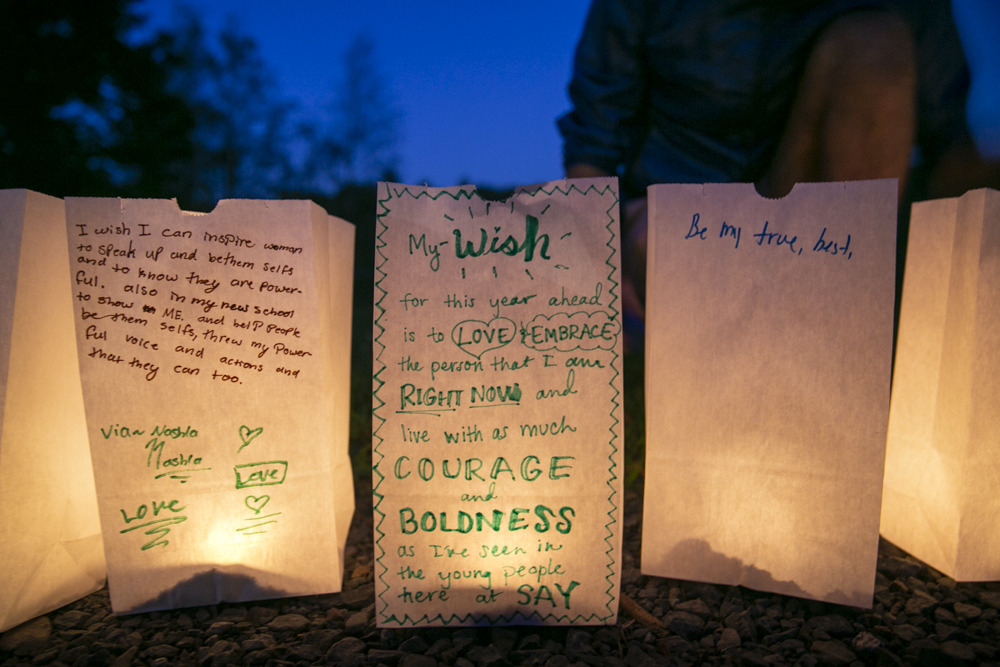 I wish I can inspire woman
to speak up and bethem selfs
and to know they are power-
ful. also in my new school
to show ME. and help people
be them selfs, threw my Power-
ful voice and actions and
that they can too.
Vian Nashla
Nashla
Love
Love
My Wish
for this year ahead
is to LOVE & EMBRACE
the person that I am
RIGHT NOW and
live with as much
COURAGE
and
BOLDNESS
as I've seen in
the young people
here at SAY
Be my true, best,